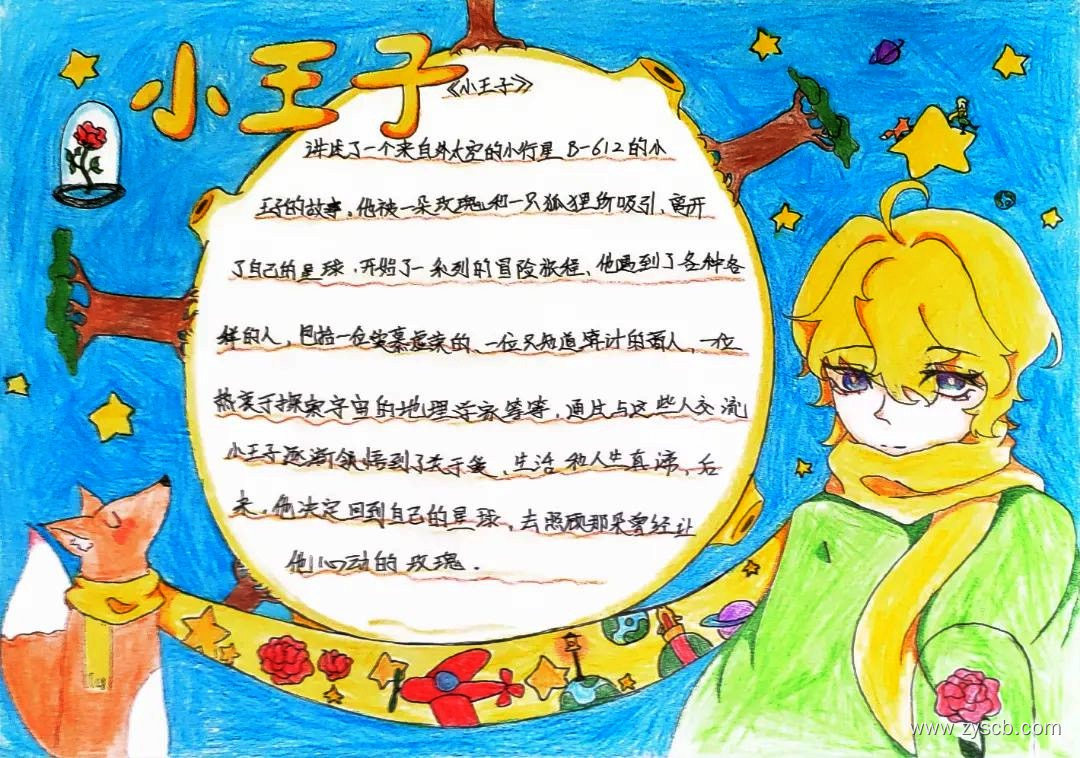 小王子
《小王子》
讲述了一个来自外太空的小行星 B-612的小
王子的故事，他被一朵玫瑰和一只狐狸所吸引，离开
了自己的星球，开始了一系列的冒险旅程，他遇到了各种各
样的人，包括一位爱慕虚荣的、一位只知道算计的商人，一位
热衷于探索宇宙的地理学家等等，通过与这些人交流
小王子逐渐领悟到了关于爱、生活和人生真谛，后
来，他决定回到自己的星球，去照顾那朵曾经让
他心动的玫瑰.
www.zyscb.com